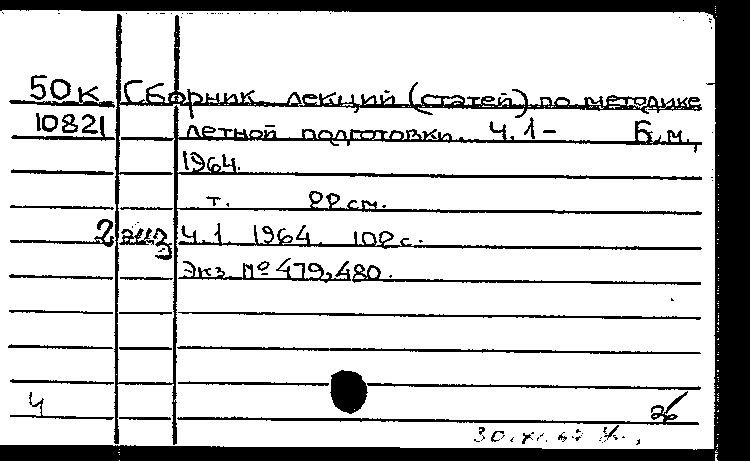 50к Сборник лекций (статей) по методике
10821 летной подготовки. Ч.1- Б.м.,
1964.
т. 22 см.
2 экз Ч.1. 1964. 102 с.
Экз. № 479,480.
Ч